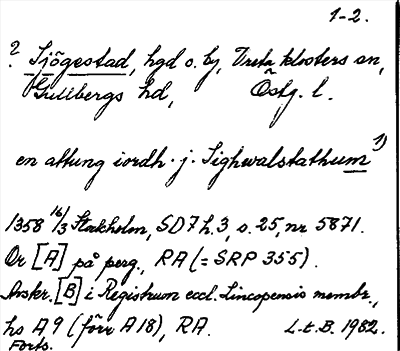 1-2.
? Sjögestad, hgd o. by, Vreta klosters sn,
Gullbergs hd, Östg. l.
en attung iordh · j · Sighwalstathum 1)
1358 16/3 Stockholm, SD 7 h. 3, s. 25, nr 5871.
Or [A] på perg., RA (= SRP 355).
Avskr. [B] i Registrum eccl. Lincopensis membr.,
hs A 9 (förr A 18), RA. L.t.B. 1982.
Forts.